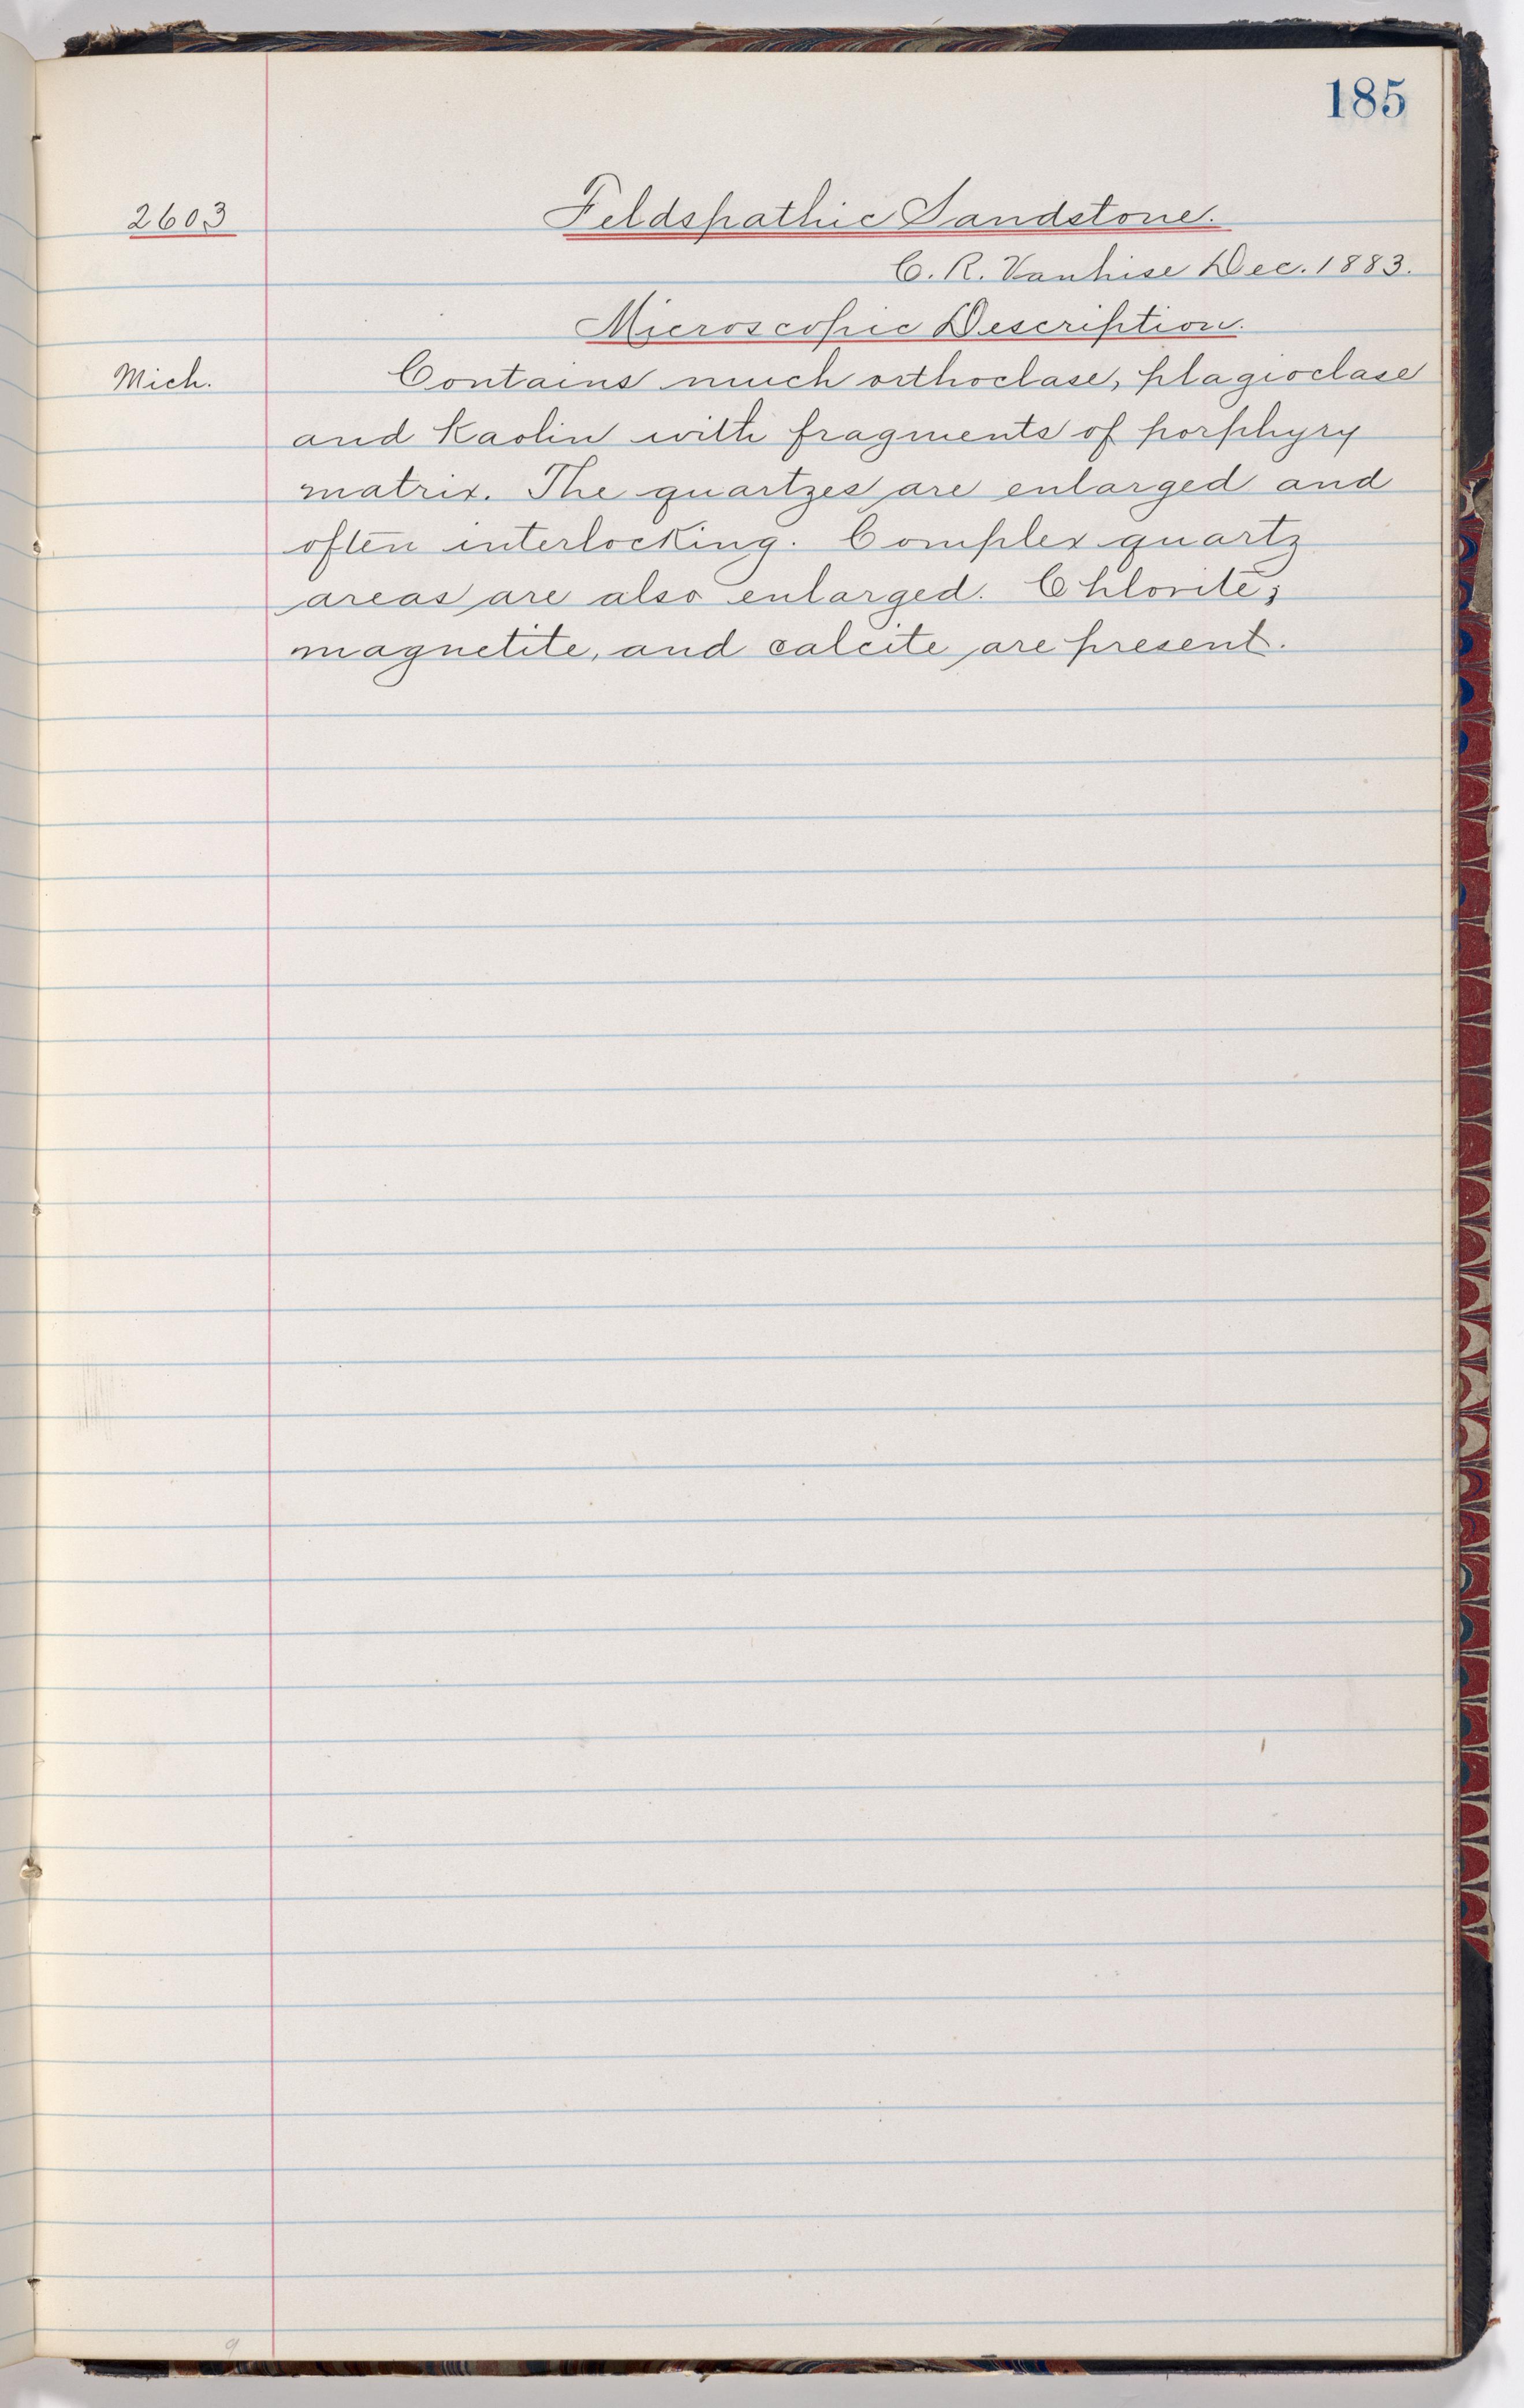 185
2603 Feldspathic Sandstone.
C. R. Vanhise Dec. 1883.
Microscopic Description.
Mich. Contains much orthoclase, plagioclase
and Kaolin with fragments of porphyry
matrix. The quartzes are enlarged and
often interlocking. Complex quartz
areas are also enlarged. Chlorite,
magnetite, and calcite are present.
9